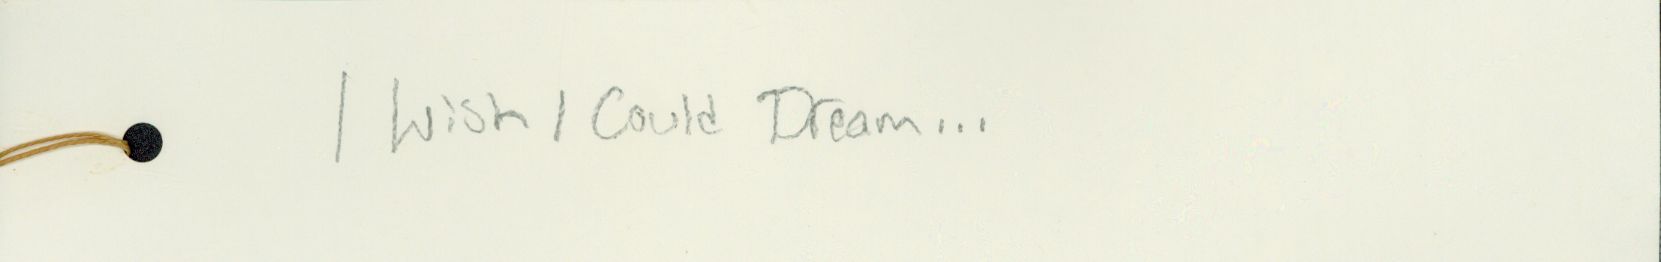 I Wish I Could Dream...